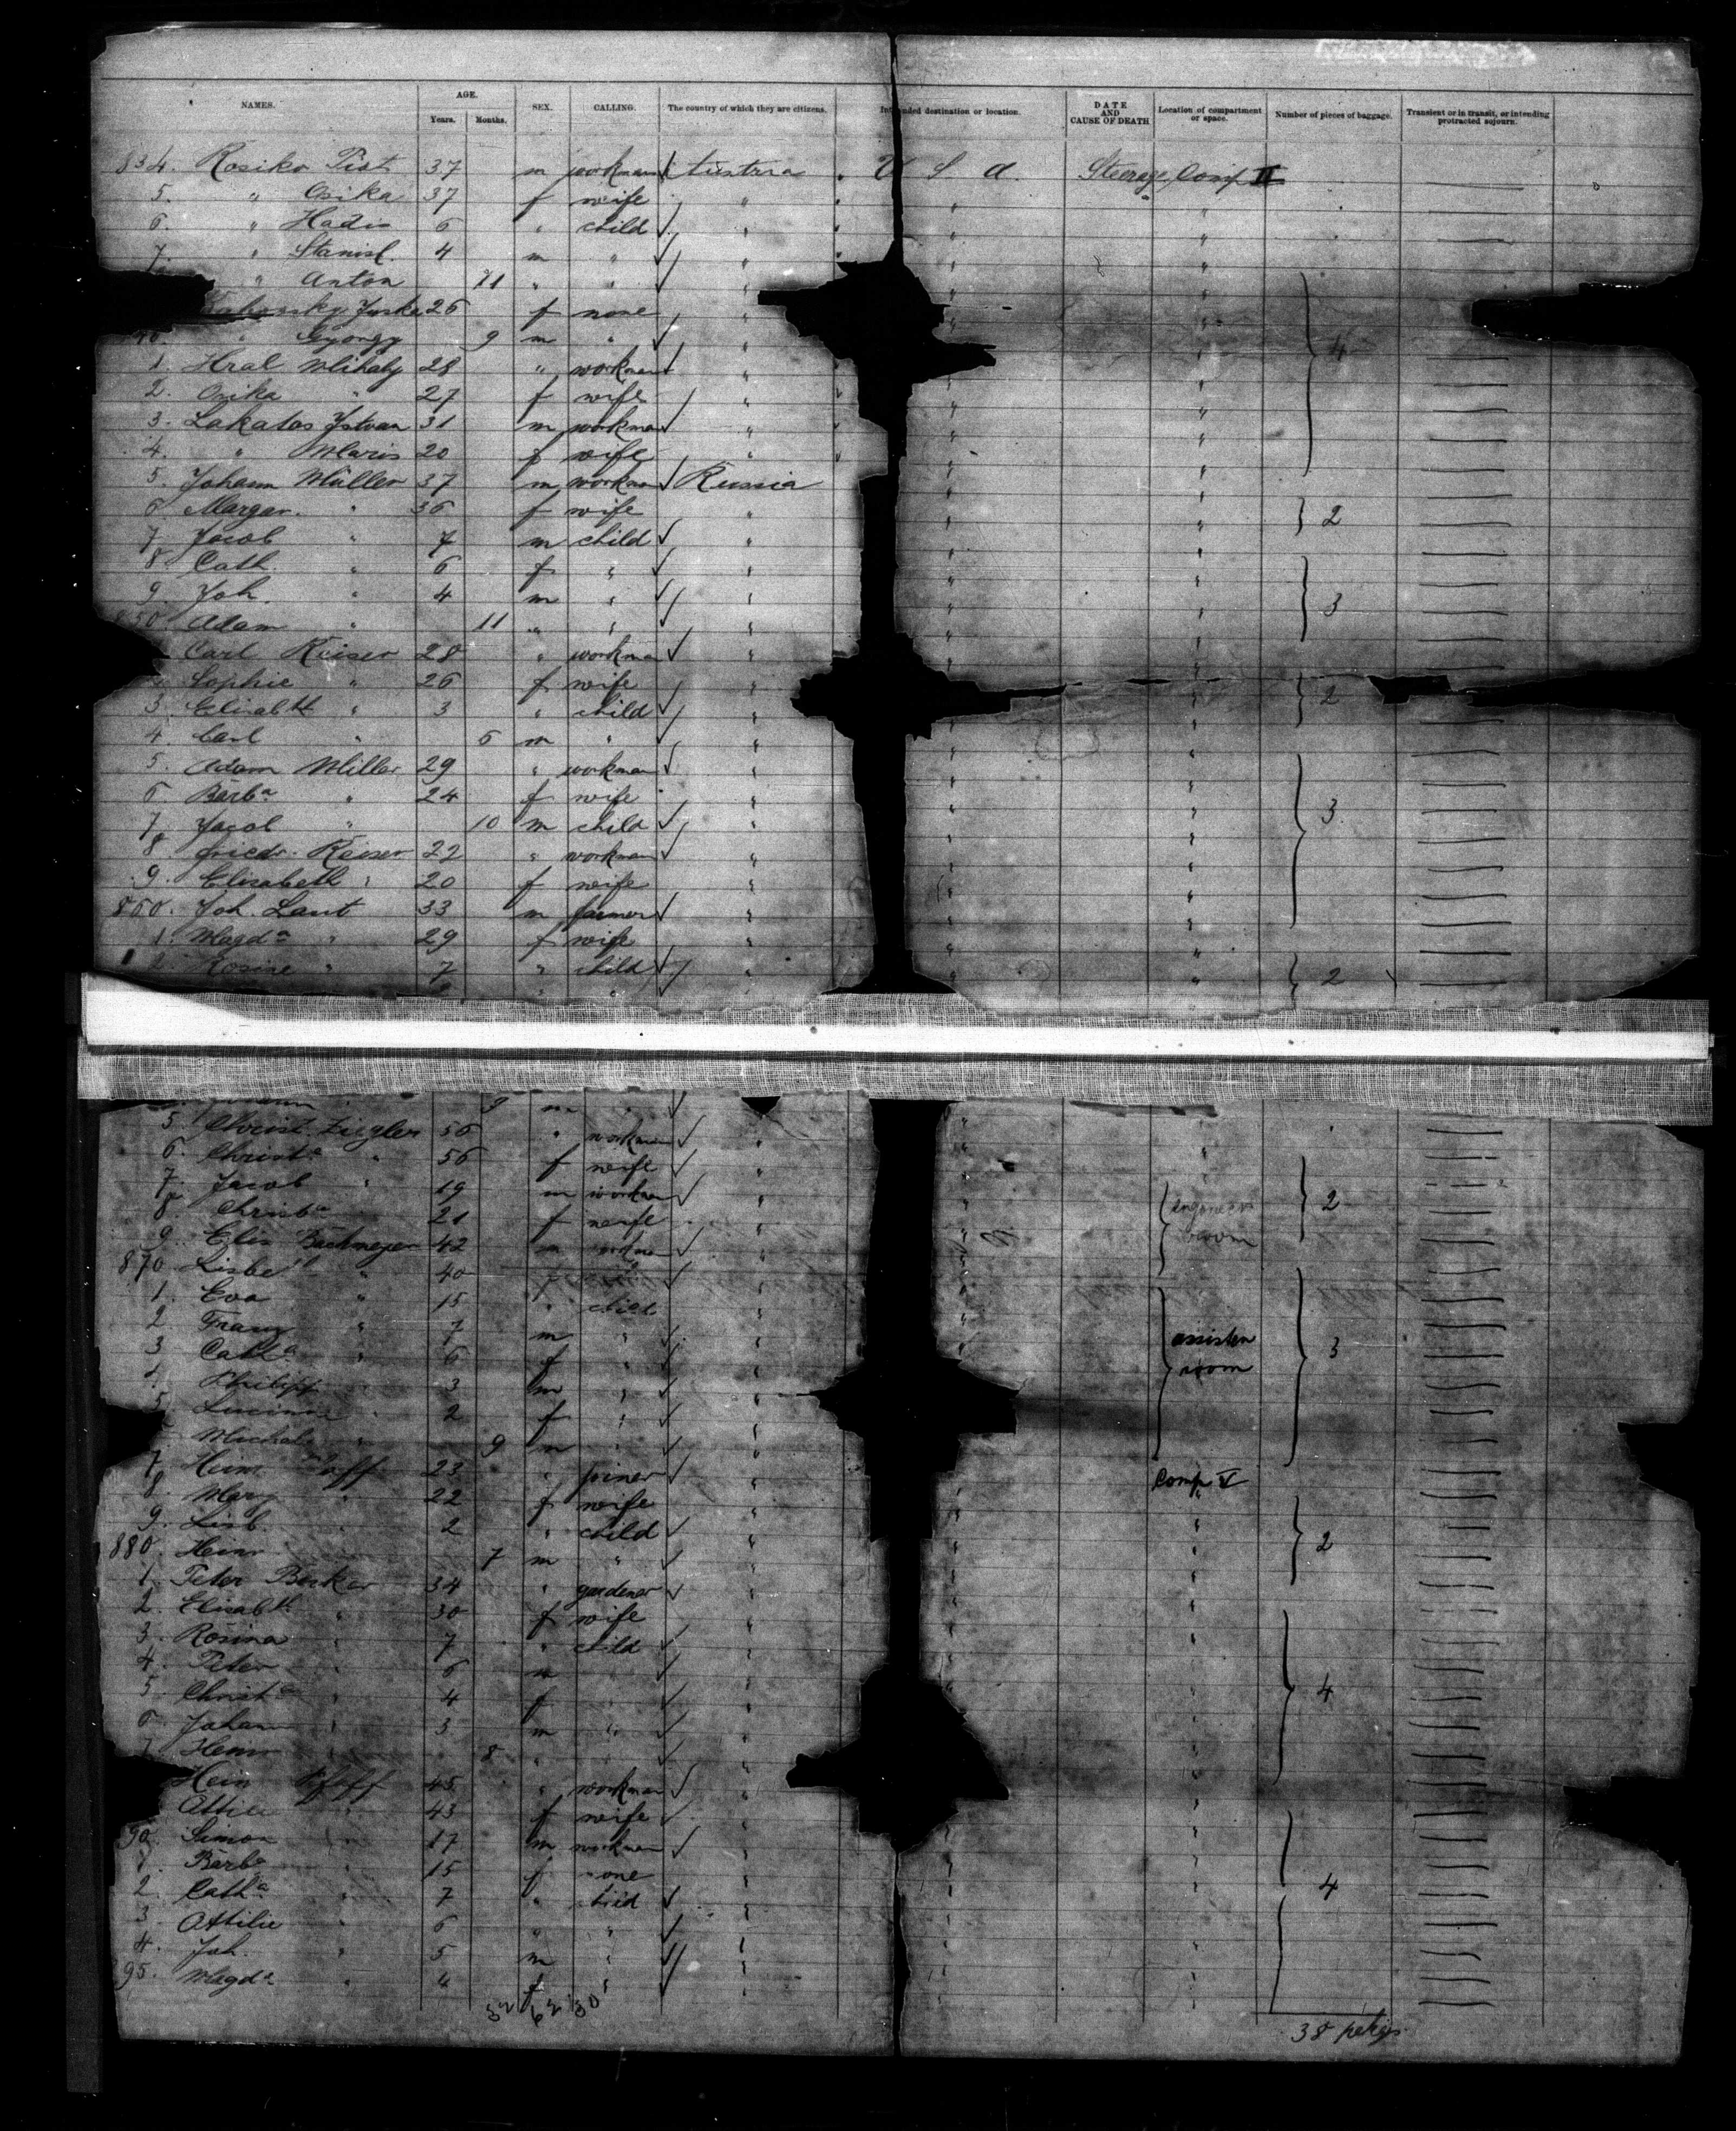 NAMES. AGE. Years. Months. SEX. CALLING. The country of which they are citizens. Intended destination or location. DATE AND CAUSE OF DEATH Location of compartment or space. Number of pieces of baggage. Transient or in transit, or intending protracted sojourn.
834. Rosiko Pist 37 m workman Austria U S a. Steerage Comp II
5. " 37 f wife "
6. " 6 " child "
7. " Stanisl. 4 m " "
" Anton 11 " " "
26 f none "
40. " Gyorgy 9 m " " 4
1. Hral Mihaly 28 " workman "
2. " 27 f wife "
3. Lakatos Istvan 31 m workman "
4. " Maris 20 f wife "
5. Johann Müller 37 m workman Russia
6 Margar. " 36 f wife " 2
7. Jacob " 7 m child "
8 Cath. " 6 f " "
9 Joh. " 4 m " " 3
850. Adam " 11 " " "
Carl Reiser 28 " workman "
Sophie " 26 f wife " 2
3. Elisabth " 3 " child "
4. Carl " 6 m " "
5. Adam Miller 29 " workman "
6. Barba " 24 f wife "
7. Jacob " 10 m child " 3
8. Friedr. Reiser 22 " workman "
9. Elisabeth " 20 f wife "
860. Joh. Laut 33 m farmer "
1. Magda " 29 f wife "
2 Rosine " 7 " child " 2
9 m "
5. Christ. Ziegler 56 " workman "
6. Christa " 56 f wife "
7. Jacob " 19 m workman " 2
8. Christa 21 f wife " room
9. Bachmeyer 42 m workman "
870. " 40 f "
1. Eva " 15 " child "
2. Franz " 7 m " " assisten 3
3 Catha " 6 f " " room
4. Philipp 3 m " "
5. 2 f " "
Michael 9 m " "
7. Heinr. 23 " joiner " Comp V
8. " 22 f wife "
9. Lisb. 2 " child " 2
880. Heinr. 7 m " "
1. Peter Becker 34 " gardener "
2. Elisabth " 30 f wife "
3. Rosina " 7 " child "
4. Peter " 6 m "
5. Christa " 4 f " " 4
6. Johann " 3 m " "
7. Heinr 8 "
Hein Pfaff 45 " workman "
" 43 f wife "
90. Simon " 17 m workman "
1. Barba 15 f none " 4
2. Catha " 7 " child "
3. Attilie " 6 " " "
4. Joh. " 5 m " "
95. Magda " 4 f " "
32 62 30
38 pckgs